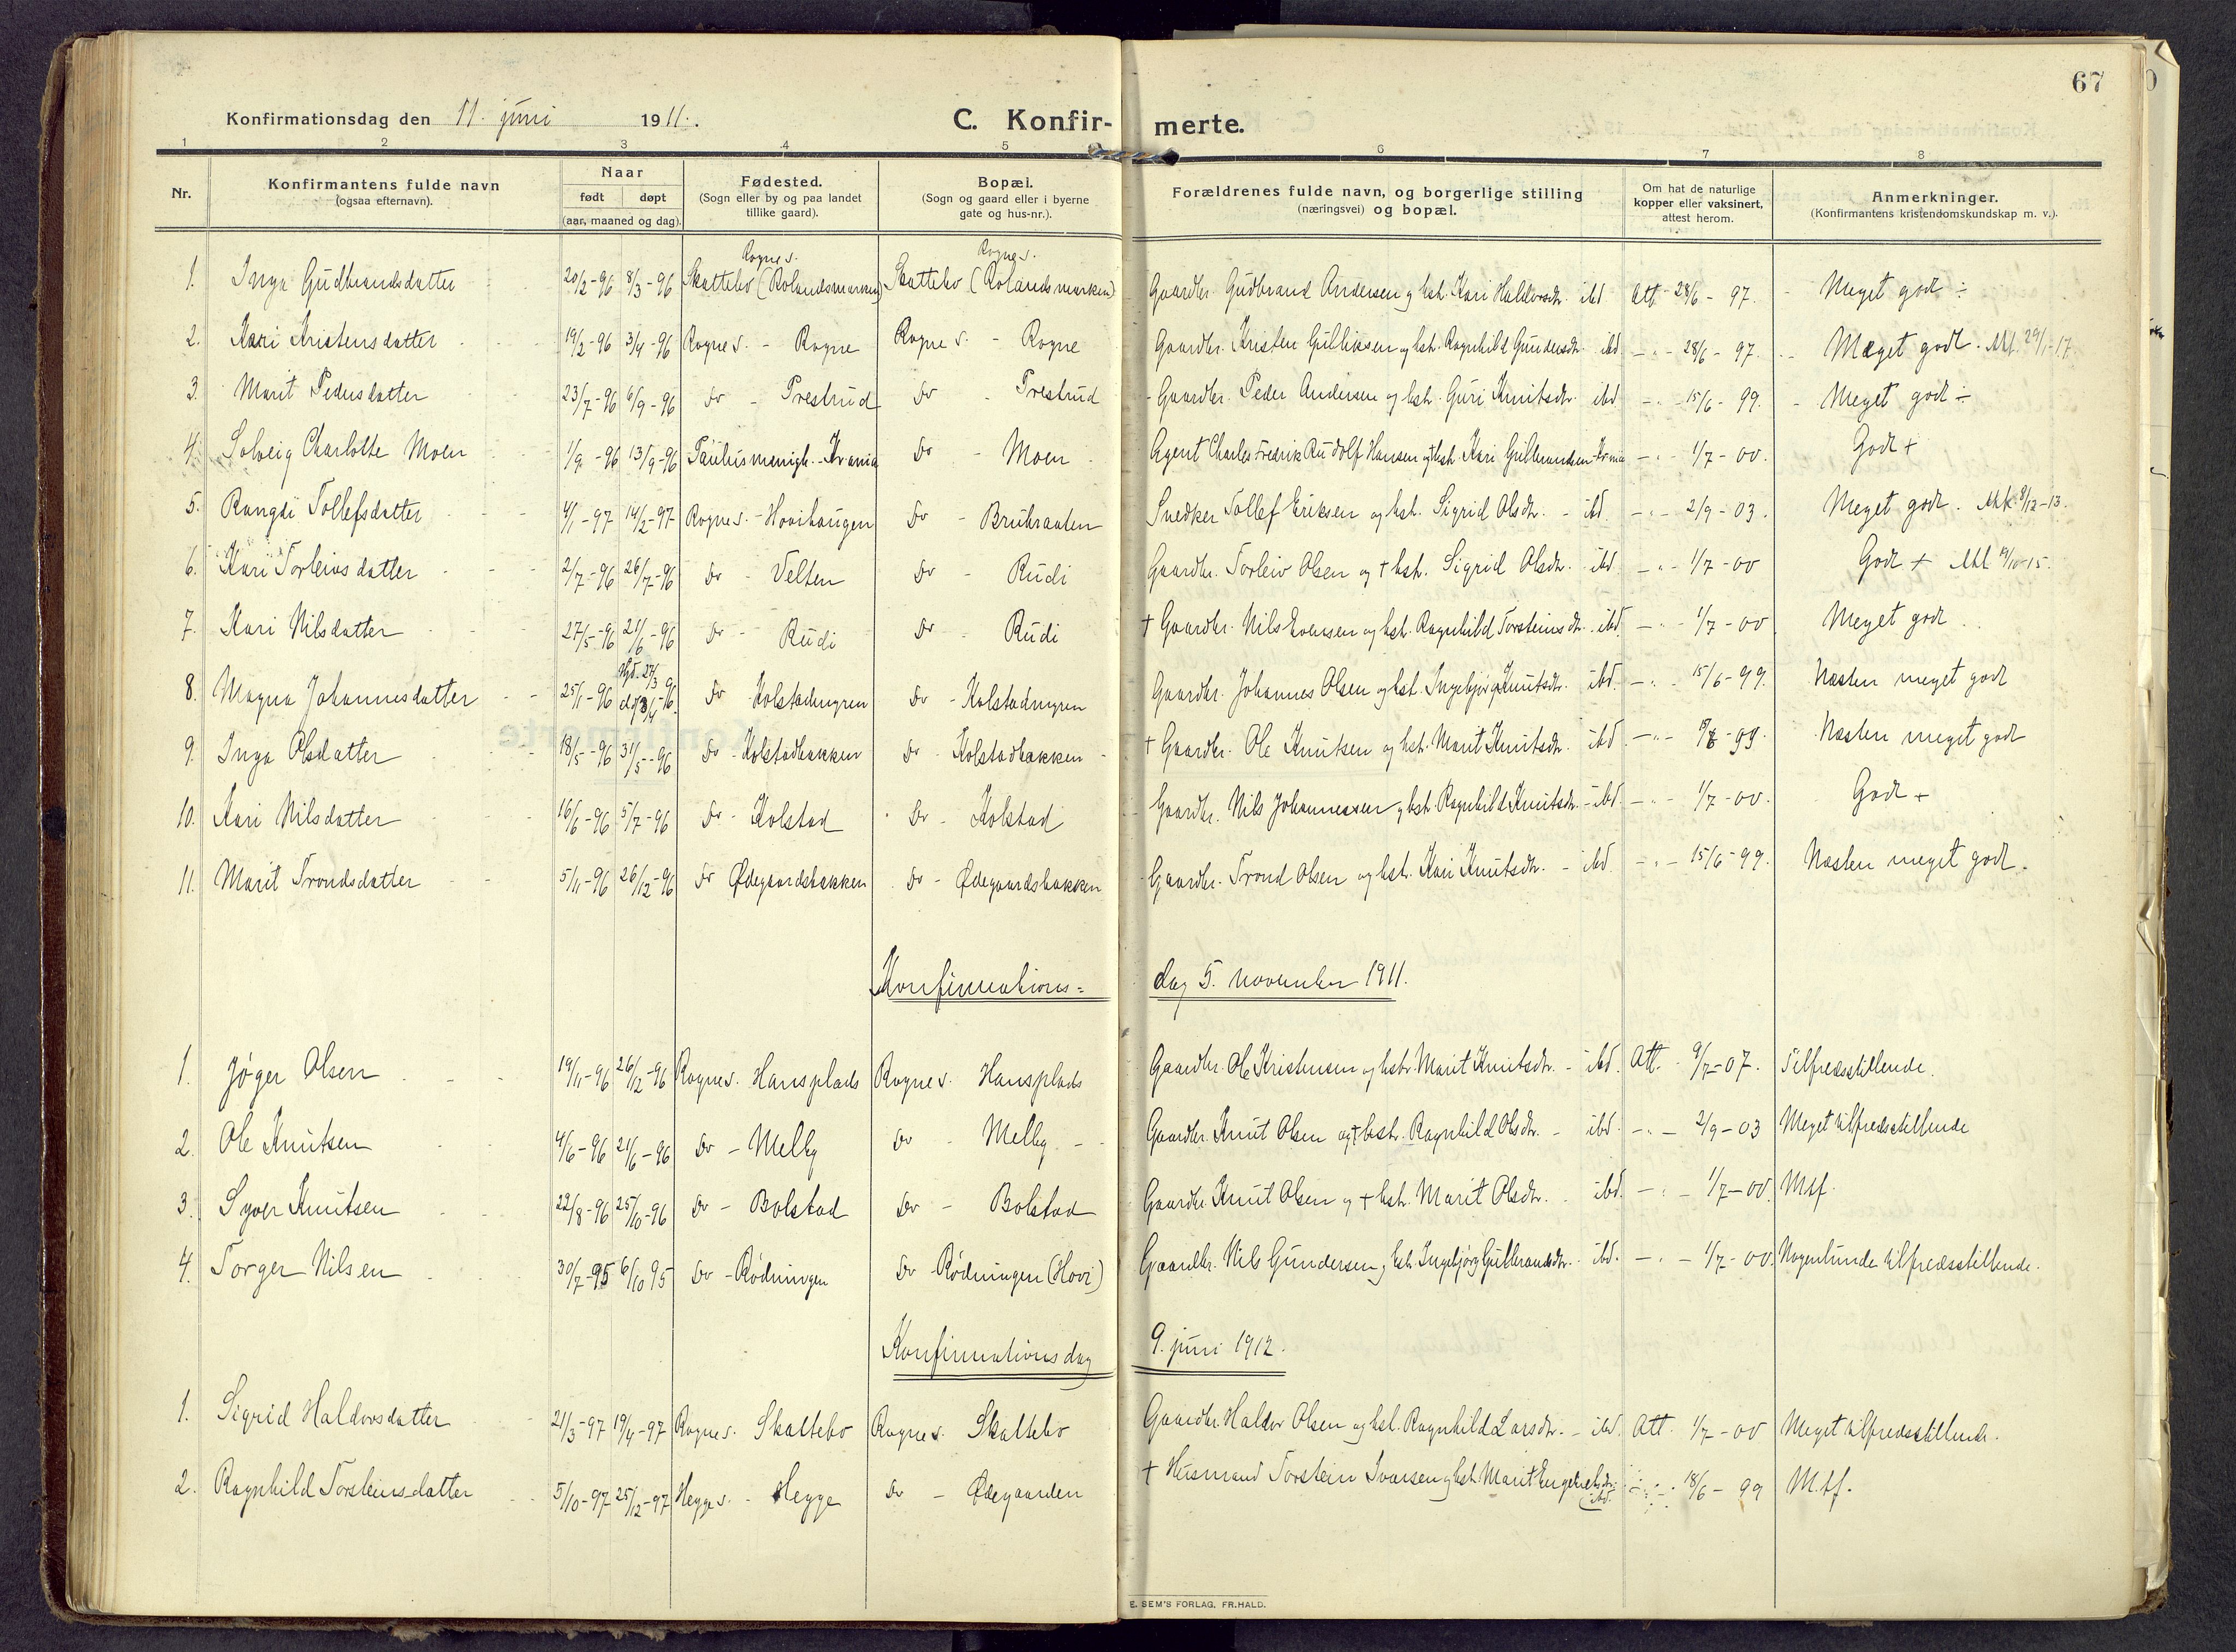 67
Konfirmationsdag den 11. juni 1911.
C. Konfir- merte.
1 2 3 4 5 6 7 8
Nr. Konfirmantens fulde navn (ogsaa efternavn). Naar født døpt (aar, maaned og dag). Fødested. (Sogn eller by og paa landet tillike gaard). Bopæl. (Sogn og gaard eller i byerne gate og hus-nr.). Forældrenes fulde navn, og borgerlige stilling (næringsvei) og bopæl. Om hat de naturlige kopper eller vaksinert, attest herom. Anmerkninger. (Konfirmantens kristendomskundskap m. v.).
1. Inga Gudbrandsdatter 20/2-96 8/3-96 Rogne s. Skattebo (Rolandsmarken) Rogne s. Skattebo (Rolandsmarken) Gaardbr. Gudbrand Andersen og hst. Kari Haldorsdtr. ibd Att 28/6 - 97. Meget godt ÷
2. Kari Kristensdatter 19/2-96 3/4-96 Rogne s. - Rogne Rogne s. - Rogne Gaardbr. Kristen Gulliksen og hst. Ragnhild Gundersdtr. ibd - " - 28/6 - 97. Meget godt. Att. 29/1-17.
3. Marit Pedersdatter 23/7-96 6/9-96 Do - Prestrud Do - Prestrud Gaardbr. Peder Andersen og hst. Guri Knutsdtr. ibd - " - 15/6 - 99. Meget godt ÷
4. Solveig Charlotte Moen 1/9-96 13/9-96 Paulus menigh. - Kr.ania Do - Moen Agent Charles Fredrik Rudolf Hansen og hst. Kari Gulbrandsen - Kr.ania - " - 1/7 - 00. Godt +
5. Rangdi Tollefsdatter 4/1-97 14/2-97 Rogne s. - Hovihaugen Do - Brubraaten Snedker Tollef Eriksen og hst. Sigrid Olsdtr. - ibd - " - 2/9 - 03. Meget godt. Att. 8/12-13.
6. Kari Torleivsdatter 2/7-96 26/7-96 Do - Velten Do - Rudi Gaardbr. Torleiv Olsen og + hst. Sigrid Olsdtr. ibd. - " - 1/7 - 00 Godt + Att 19/10-15.
7. Kari Nilsdatter 27/5-96 21/6-96 Do - Rudi Do - Rudi + Gaardbr. Nils Evensen og hst. Ragnhild Torsteinsdtr. ibd. - " - 1/7 - 00. Meget godt
8. Magna Johannesdatter 25/1-96 Hjd. 27/3 dp 3/4-96. Do Kolstadengen Do - Kolstadengen Gaardbr. Johannes Olsen og hst. Ingebjørg Knutsdtr. ibd. - " - 15/6 - 99. Næsten meget godt
9. Inga Olsdatter 18/5-96 31/5-96 Do - Kolstadbakken Do - Kolstadbakken + Gaardbr. Ole Knutsen og hst. Marit Knutsdtr. ibd. - " - 99. Næsten meget godt
10. Kari Nilsdatter 16/6-96 5/7-96 Do - Kolstad Do - Kolstad Gaardbr. Nils Johannessen og hst. Ragnhild Knutsdtr. - ibd. - " - 1/7 - 00. Godt +
11. Marit Trondsdatter 5/11-96 26/12-96 Do Ødegaardsbakken Do - Ødegaardsbakken Gaardbr. Trond Olsen og hst. Kari Knutsdtr. - ibd. - " - 15/6 - 99. Næsten meget godt.
Konfirmations= dag 5. november 1911.
1. Jøger Olsen 19/11-96 26/12-96 Rogne s. Hansplads Rogne s. Hansplads Gaardbr. Ole Kristensen og hstr. Marit Knutsdtr. - ibd. Att. 9/7-07. Tilfredsstillende.
2. Ole Knutsen 4/6-96 21/6-96 Do - Melby Do - Melby Gaardbr. Knut Olsen og + hstr. Ragnhild Olsdtr. - ibd - " - 2/9 - 03 Meget tilfredsstillende
3. Syver Knutsen 22/8-96 25/10-96 Do - Bolstad Do - Bolstad Gaardbr. Knut Olsen og + hst. Marit Olsdtr. ibd. - " - 1/7-00. Mtf.
4. Torger Nilsen 30/7-95 6/10 95 Do - Rødningen Do Rødningen (Hovi) Gaardbr. Nils Gundersen og hst. Ingebjørg Gulbrandsdtr. ibd. - " - 1/7-00. Nogenlunde tilfredsstillende.
Konfirmationsdag 9. juni 1912.
1. Sigrid Haldorsdatter 21/3-97 19/4-97 Rogne s. Skattebo Rogne s. Skattebo Gaardbr. Haldor Olsen og hst. Ragnhild Larsdtr. - ibd. Att. 1/7-00 Meget tilfredsstillende.
2. Ragnhild Torsteinsdatter 5/10-97 25/12-97 Hegge s. - Hegge Do - Ødegaarden + Husmand Torstein Ivarsen og hst. Marit Engebretsdtr. ibd. - " - 18/6 - 99 M.tf.
E. SEM'S FORLAG, FR.HALD.